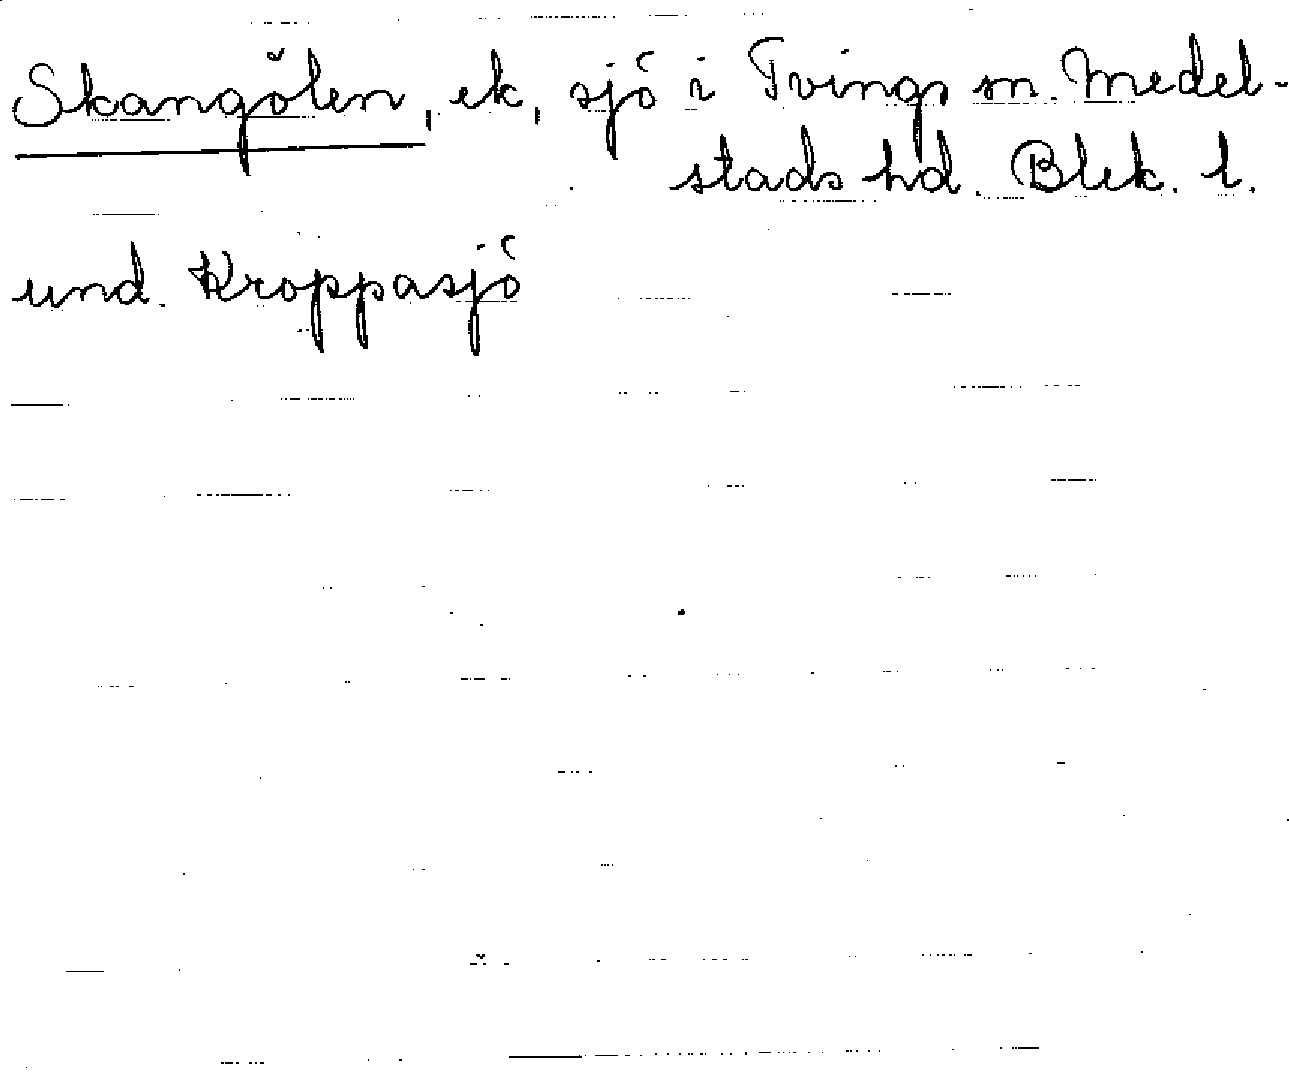 Skangölen, ek, sjö i Tvings sn. Medel-
stads hd. Blek. l.
und. Kroppasjö